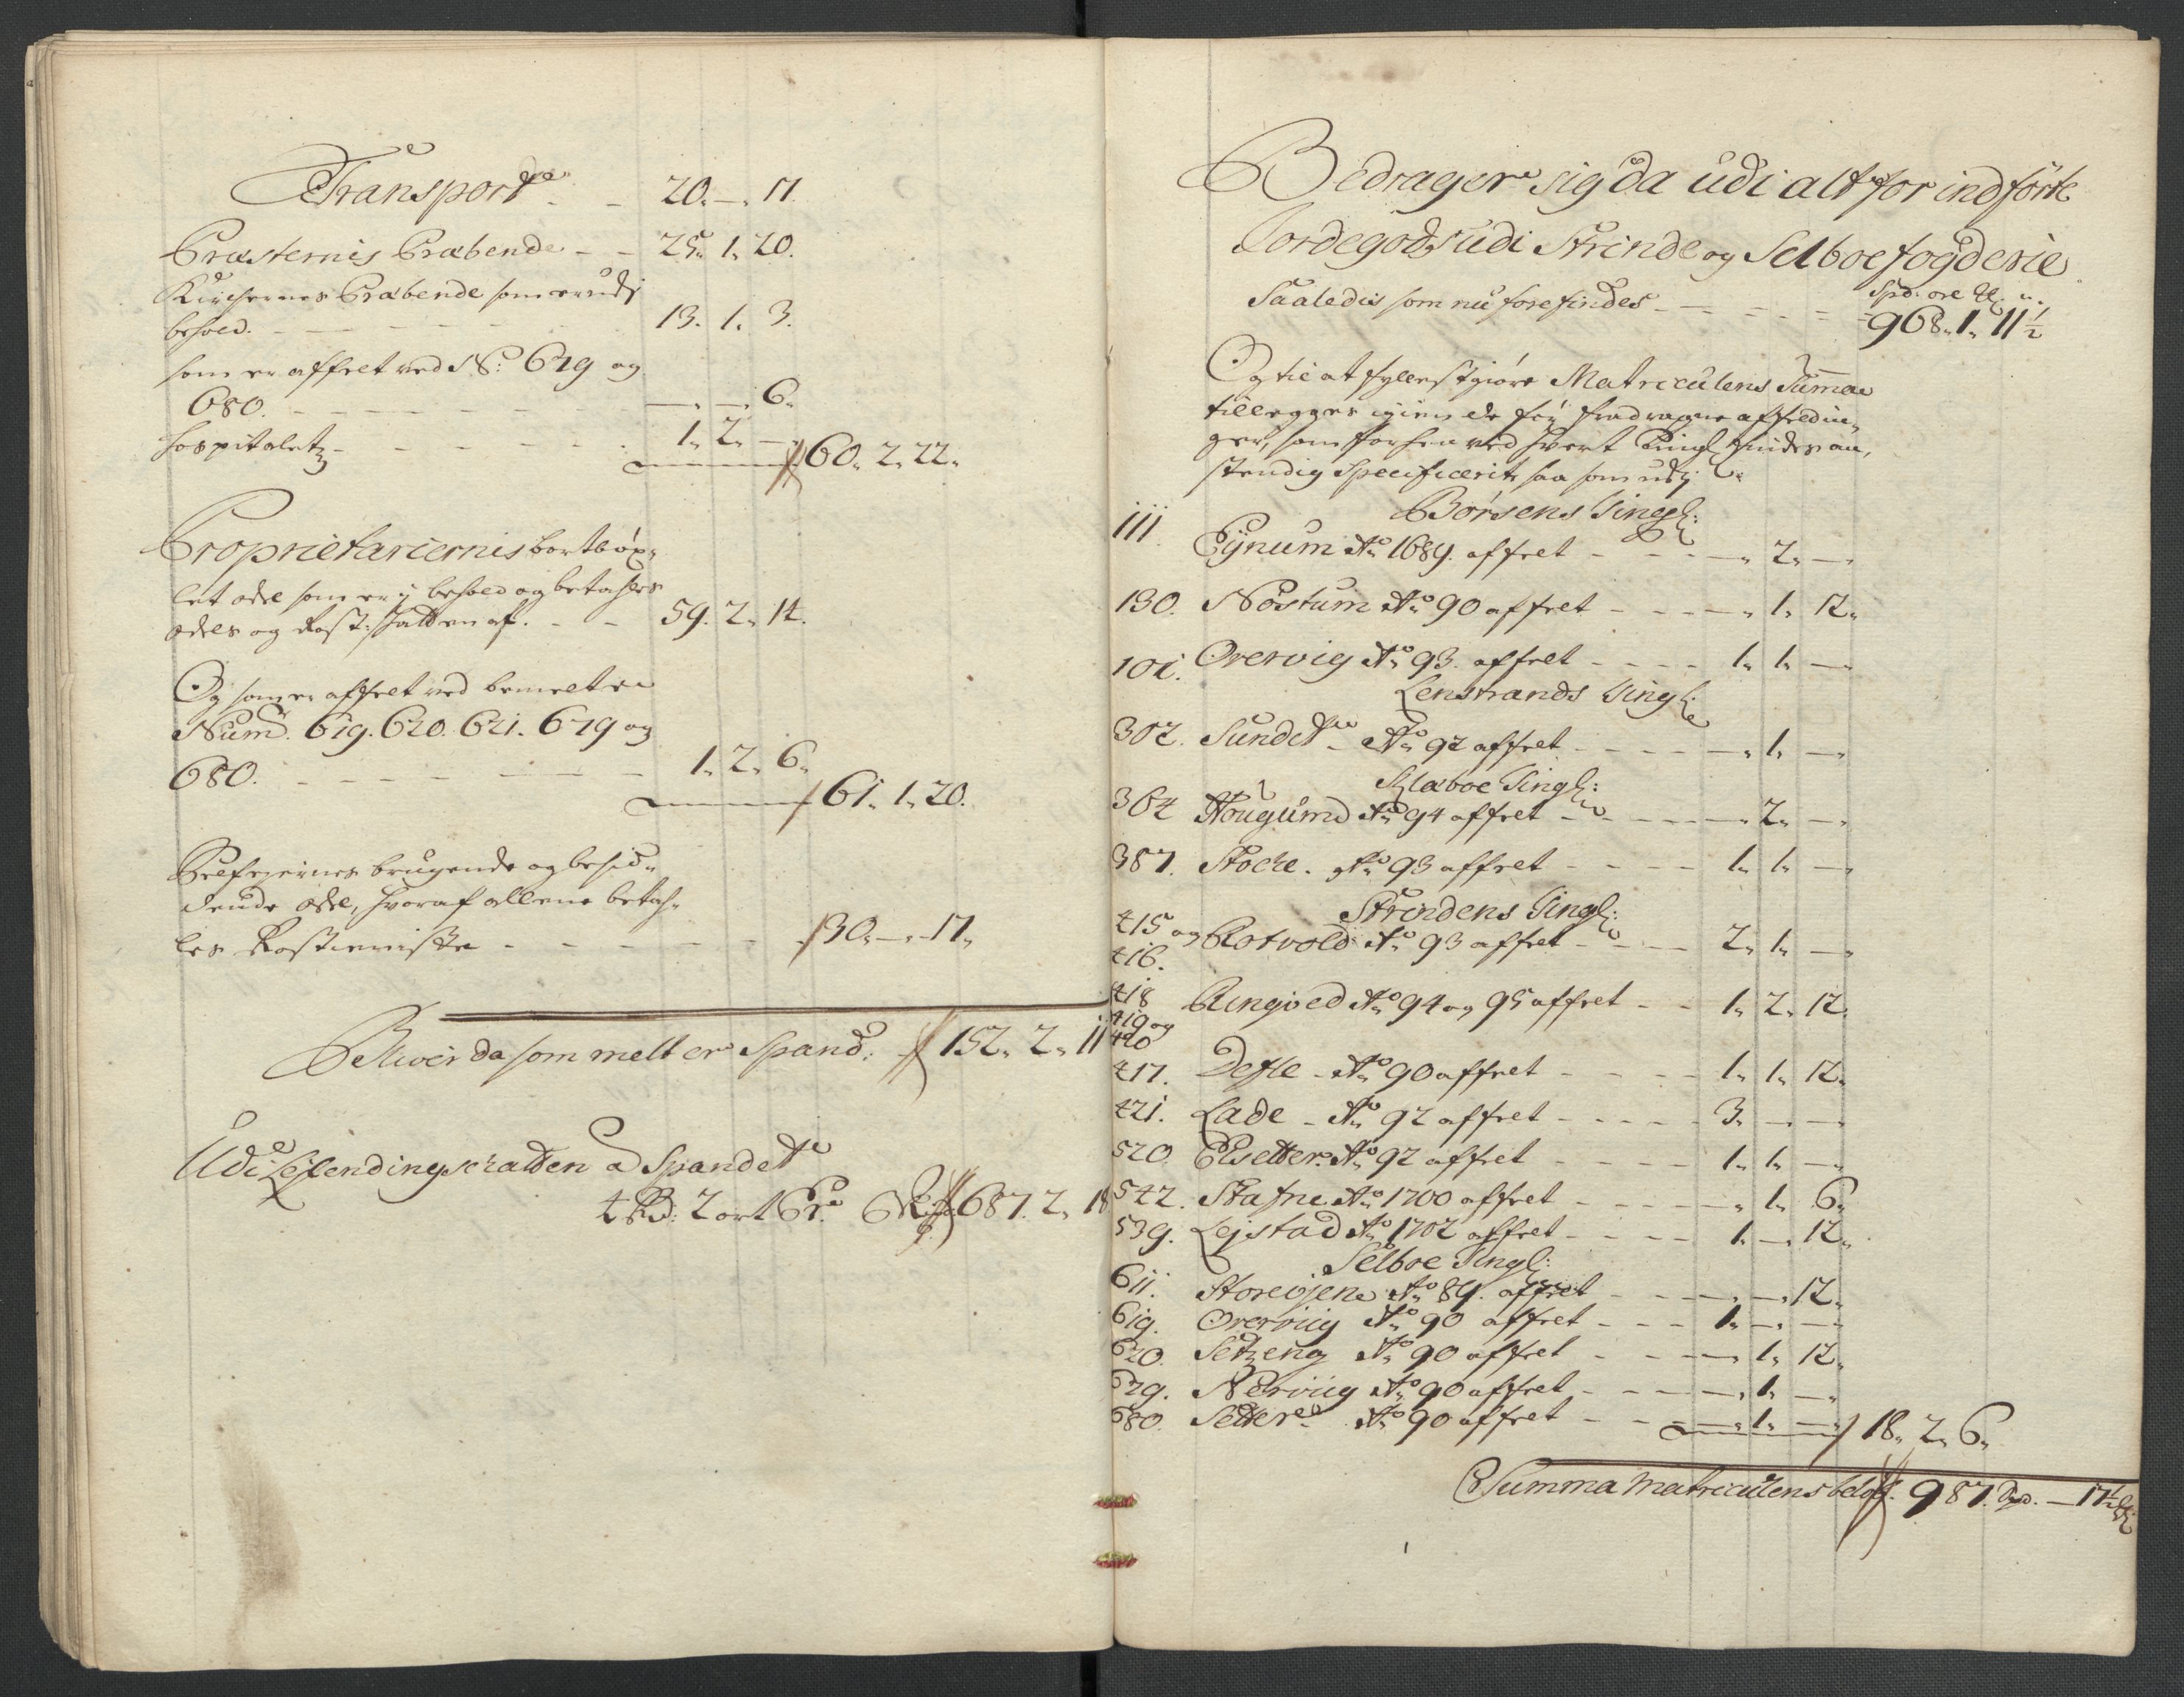 Transport - - 20. — . 17.
Præsternis Præbende - - 25. 1. 20.
Kirchernes Præbende som er udj
behold. - - - 13. 1. 3.
som er affælt ved No: 679 og
680. - - - — . — . 6.
Hospitalet - - - 1. 2. —
60. 2. 22.
Proprietariernis bortbøx-
let odel som er j behold og betahles
odels og Rost: skatten af. - - 59. 2. 14.
Og som er affælt ved bemelte
Num. 619. 620. 621. 679 og
680. - - - 1. 2. 6.
61. 1. 20.
Selfejernes brugende og besid-
dende odel, hvoraf allene betah-
les Rostieniste - - - 30. — . 17.
Blwer da som melt er Spand: 152. 2. 11
Udi Leylendingschatten a Spandet
4 Rd: 2 ort 6 s. 687. 2. 18
Bedrager sig da udi alt for indførte
Jordegods udi Strinde og Selboe fogderie
Spd. ore
Saaledis som nu forefindes - - - 968. 1. 11½
Og til at fyllestgiøre Matriculens Summa
tillegges igien de fradragne affeldin-
ger, som forhen ved hvert Tingl findes an-
stendig Specificerit saa som udj
Børsens Tingl:
111. Eynum Ao 1689. affælt - - — . 2. —
130. Nostum Ao 90 affælt - - - — . 1. 12.
101. Overvig Ao 93. affælt - - - 1. 1. —
Lenstrands Tingl:
302. Sundet Ao 92 affælt - - - — . 1. —
Klæboe Tingl:
364 Hougumd Ao 94 affælt - - - — . 2. —
387. Stocke. Ao 93 affælt - - - 1. 1. —
Strindens Tingl:
415 og Rotvold Ao 93 affælt - - - 2. 1. —
416.
418 Ringved Ao 94 og 95 affælt - - 1. 2. 12.
419 og
420
417. Defle - Ao 90 affælt - - - 1. 1. 12.
421. Lade - Ao 92 affælt - - - 3. — . —
520. Elsetter. Ao 92 affælt - - - 1. 1. —
542. Stafne Ao 1700 affælt - - - — . 1. 6.
539. Lejstad Ao 1702 affælt - - - 1. — . 12.
Selboe Tingl:
611. Storeøjen Ao 89. affælt - - - — . — . 12.
619. Overviig Ao 90 affælt - - - 1. — . —
620. Setzeng Ao 90 affælt - - — . 1. 12.
679. Nerviig Ao 90 affælt - - - — . 1. —
680. Setter Ao 90 affælt - - — . 1. —
18. 2. 6.
Summa Matriculens beløb. 987. Spd. — 17½